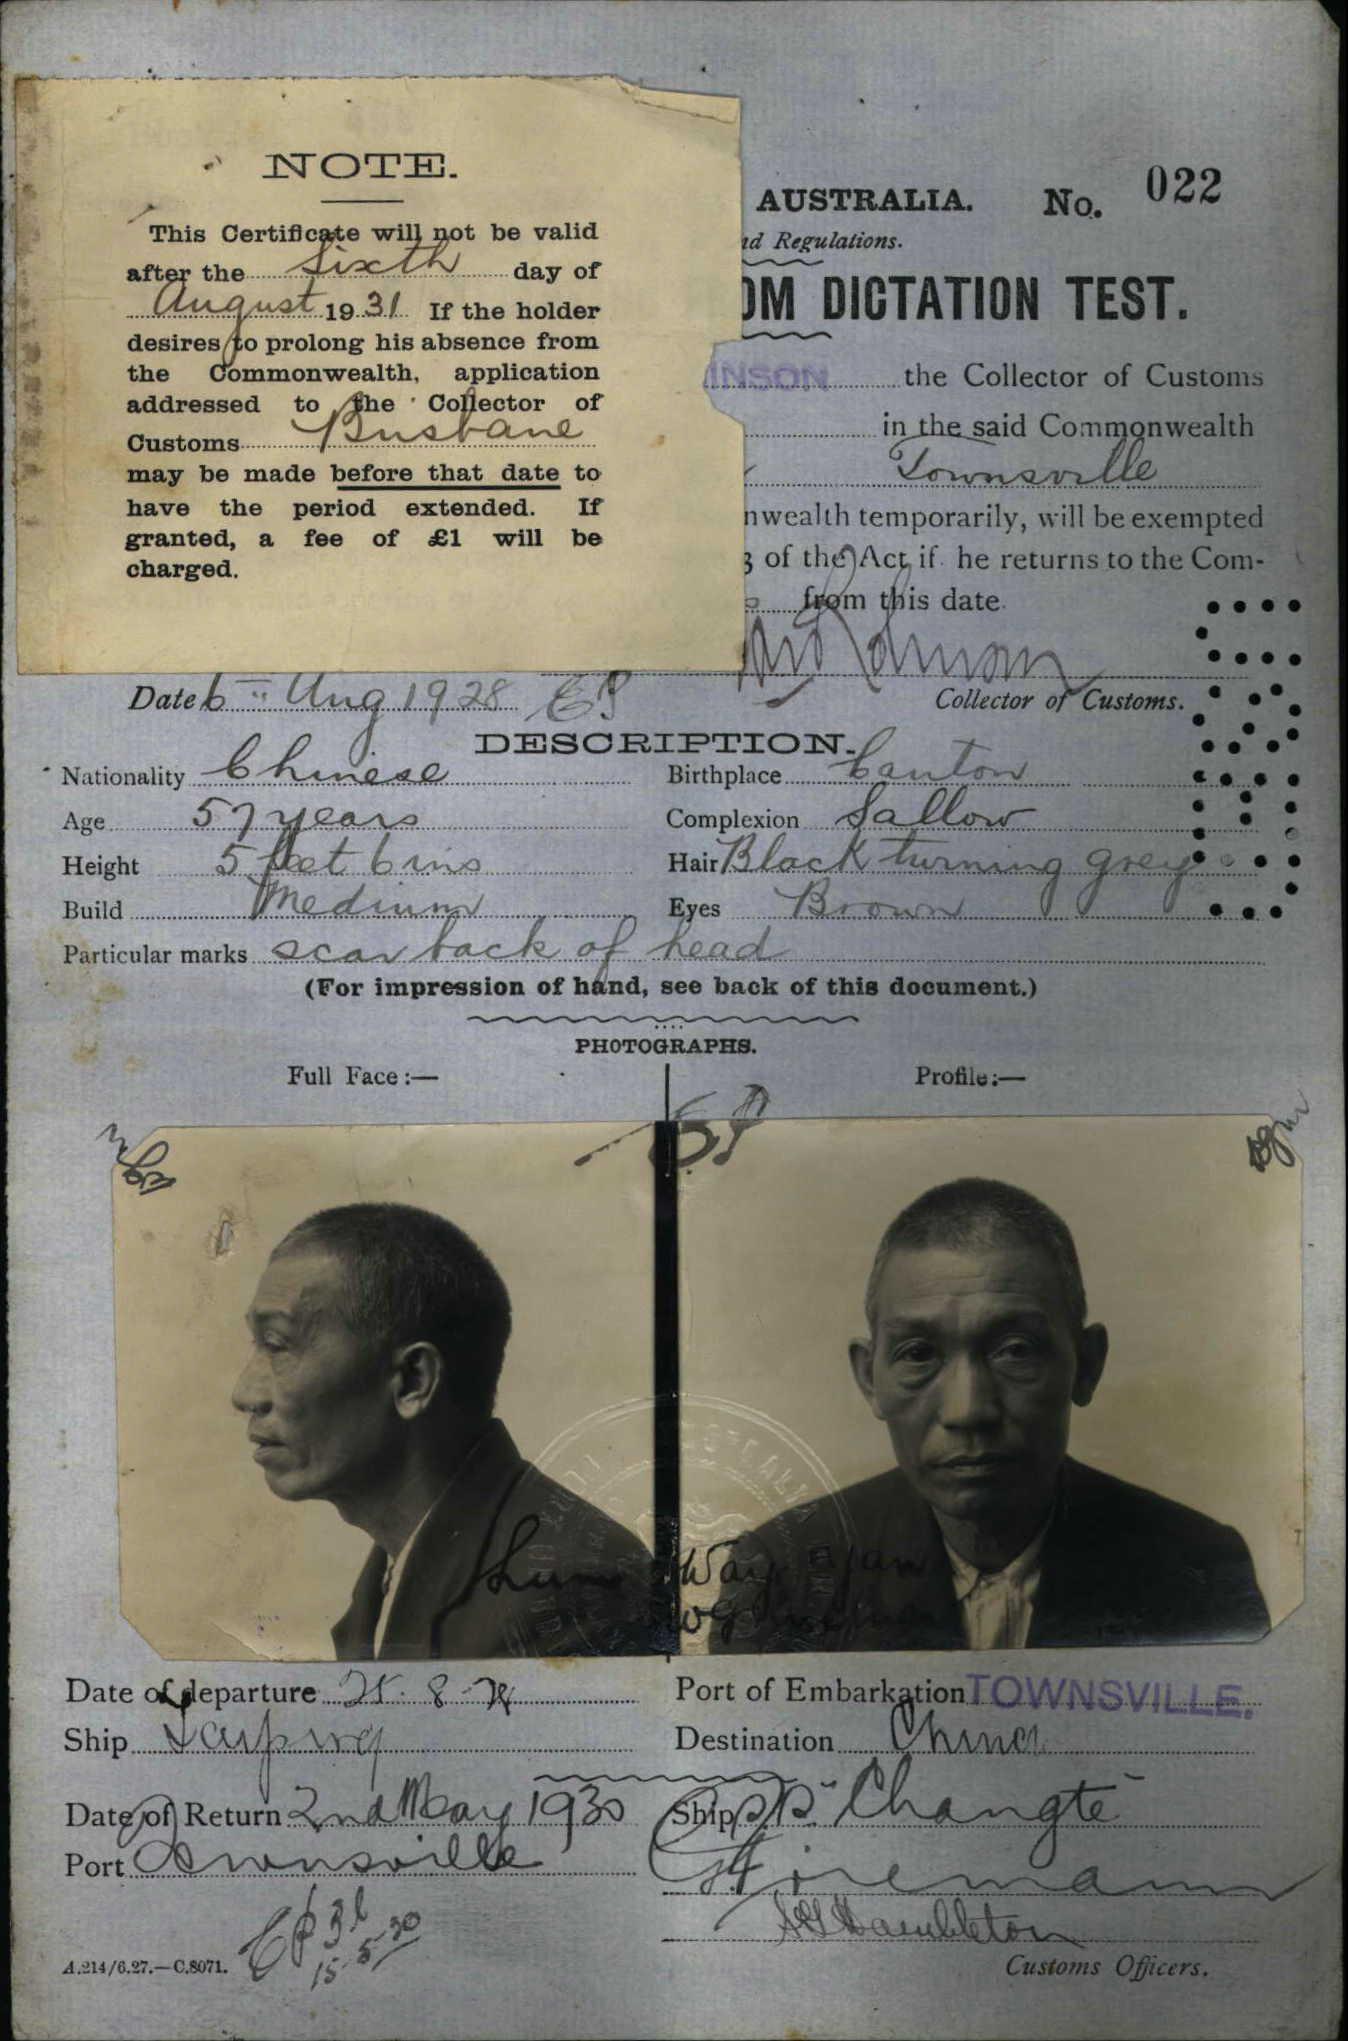 NOTE.
This Certificate will not be valid
after the Sixth day of
August 1931 If the holder
desires to prolong his absence from
the Commonwealth, application
addressed to the Collector of
Customs Brisbane
may be made before that date to
have the period extended. If
granted, a fee of £1 will be
charged.
AUSTRALIA. No. 022
nd Regulations.
OM DICTATION TEST.
INSON the Collector of Customs
in the said Commonwealth
Townsville
nwealth temporarily, will be exempted
3 of the Act if he returns to the Com-
from this date.
Collector of Customs.
Date 6 Aug 1928
DESCRIPTION.
Nationality Chinese Birthplace Canton
Age 57 years Complexion Sallow
Height 5 feet 6 ins Hair Black turning grey
Build Medium Eyes Brown
Particular marks scar back of head
(For impression of hand, see back of this document.)
PHOTOGRAPHS.
Full Face:— Profile:—
Date of departure 25. 8. 28 Port of Embarkation TOWNSVILLE.
Ship Taiping Destination China
Date of Return 2nd May 1930 Ship S.S. "Changte"
Port Townsville
15-5-30
A.214/6.27.—C.8071. Customs Officers.